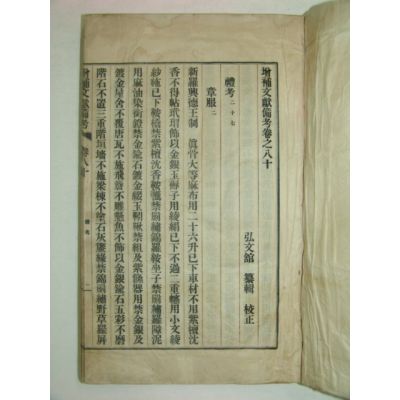 增補文獻備考卷之八十
弘文館 纂輯 校正
禮考二十七
章服二
新羅興德王制眞骨大等麻布用二十六升已下車材不用紫檀沈
香不得帖玳瑁飾以金銀玉
用綾絹已下不過二重
用小文綾
紗絁已下鞍橋禁紫檀沈香鞍韉禁
繡錦羅鞍坐子禁
繡羅障泥
用麻油染銜鐙禁金鍮石鍍金綴玉靷鞦禁組及紫
器用禁金銀及
鍍金屋舍不覆唐瓦不施飛簷不雕懸魚不飾以金銀鍮石五彩不磨
階石不置三重階垣墻不施梁棟不塗石灰簾緣禁錦罽繡野草羅屛
增補文獻備考 卷八十 禮考 一